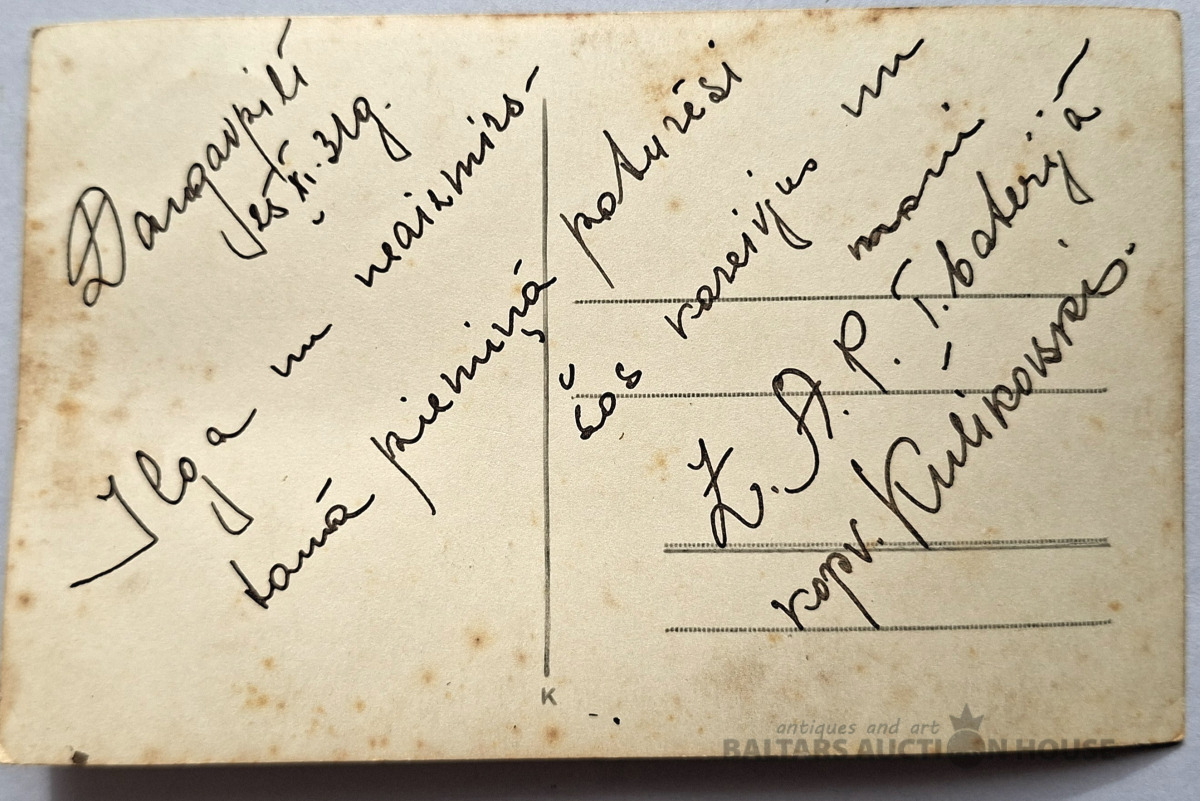 Daugavpilī
25 XI. 31g.
Ilga un neaizmirs-
tamā piemiņā paturēši
šos kareivjus un
mani
Z. A. P. I. baterijā
kapr. Kulikovskis.
K
antiques and art
BALTARS AUCTION HOUSE